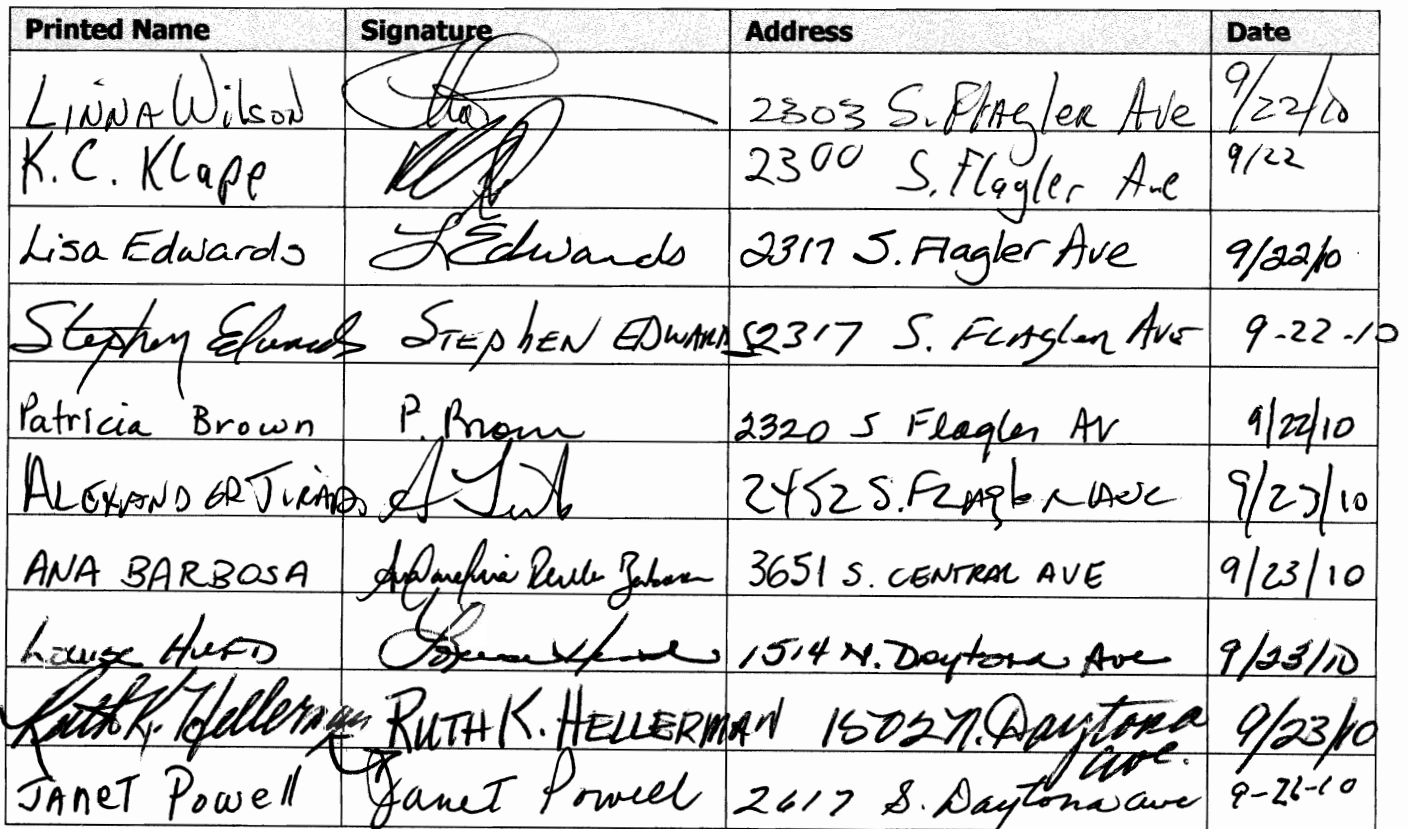 Printed Name Signature Address Date
Linna Wilson 2303 S. Flagler Ave 9/22/10
K.C. Klape 2300 S. Flagler Ave 9/22
Lisa Edwards L Edwards 2317 S. Flagler Ave 9/22/10
Stephen Edwards STEPHEN EDWARDS 2317 S. Flagler Ave 9-22-10
Patricia Brown P. Brown 2320 S Flagler AV 9/22/10
ALEXANDER 2452 S. Flagler Ave 9/23/10
ANA BARBOSA 3651 S. CENTRAL AVE 9/23/10
Louise 1514 N. Daytona Ave 9/23/10
Ruth K. Hellerman RUTH K. HELLERMAN 1502 N. Daytona ave. 9/23/10
JANET Powell Janet Powell 2617 S. Daytona ave 9-26-10